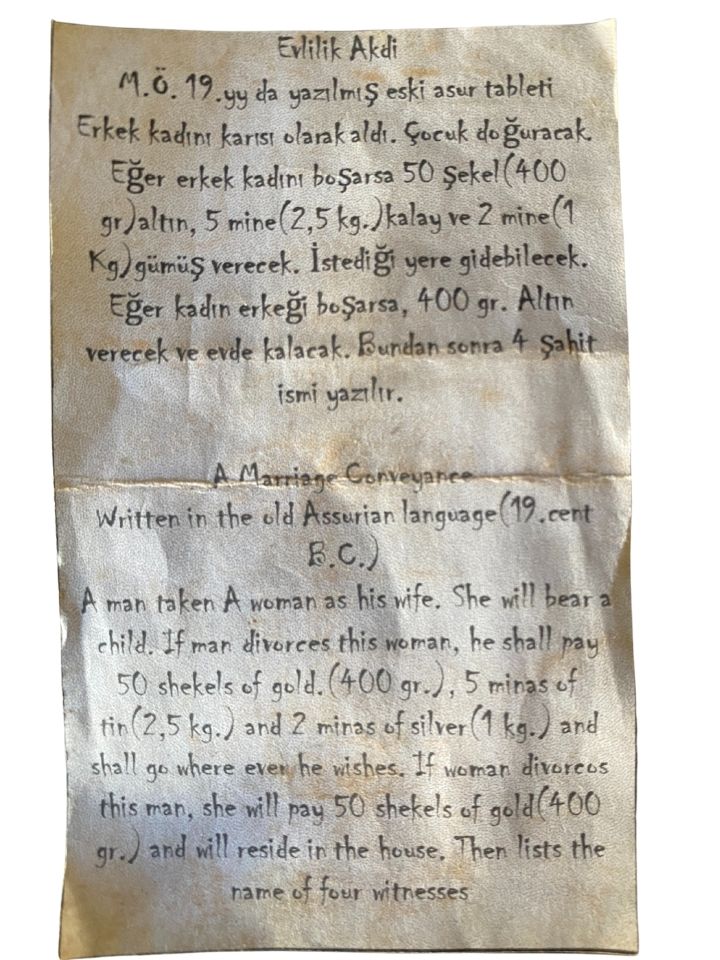 Evlilik Akdi
M.Ö. 19.yy da yazılmış eski asur tableti
Erkek kadını karısı olarak aldı. Çocuk doğuracak.
Eğer erkek kadını boşarsa 50 Şekel(400
gr)altın, 5 mine(2,5 kg.)kalay ve 2 mine(1
Kg)gümüş verecek. İstediği yere gidebilecek.
Eğer kadın erkeği boşarsa, 400 gr. Altın
verecek ve evde kalacak. Bundan sonra 4 Şahit
ismi yazılır.
A Marriage Conveyance
Written in the old Assurian language(19.cent
B.C.)
A man taken A woman as his wife. She will bear a
child. If man divorces this woman, he shall pay
50 shekels of gold.(400 gr.), 5 minas of
tin(2,5 kg.) and 2 minas of silver(1 kg.) and
shall go where ever he wishes. If woman divorces
this man, she will pay 50 shekels of gold(400
gr.) and will reside in the house. Then lists the
name of four witnesses